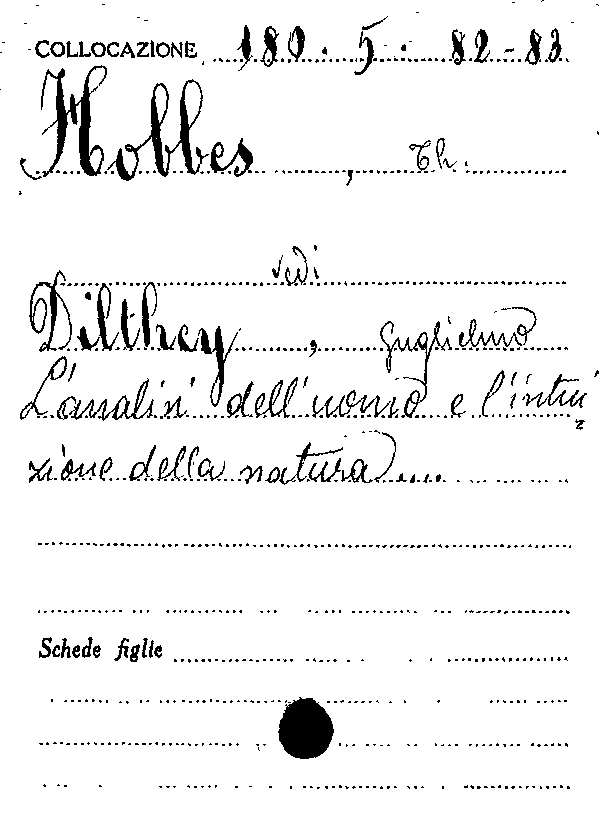 COLLOCAZIONE 180.5.82-83
Hobbes, Th.
vedi
Dilthey, Guglielmo
L'analisi dell'uomo e l'intui
zione della natura....
Schede figlie